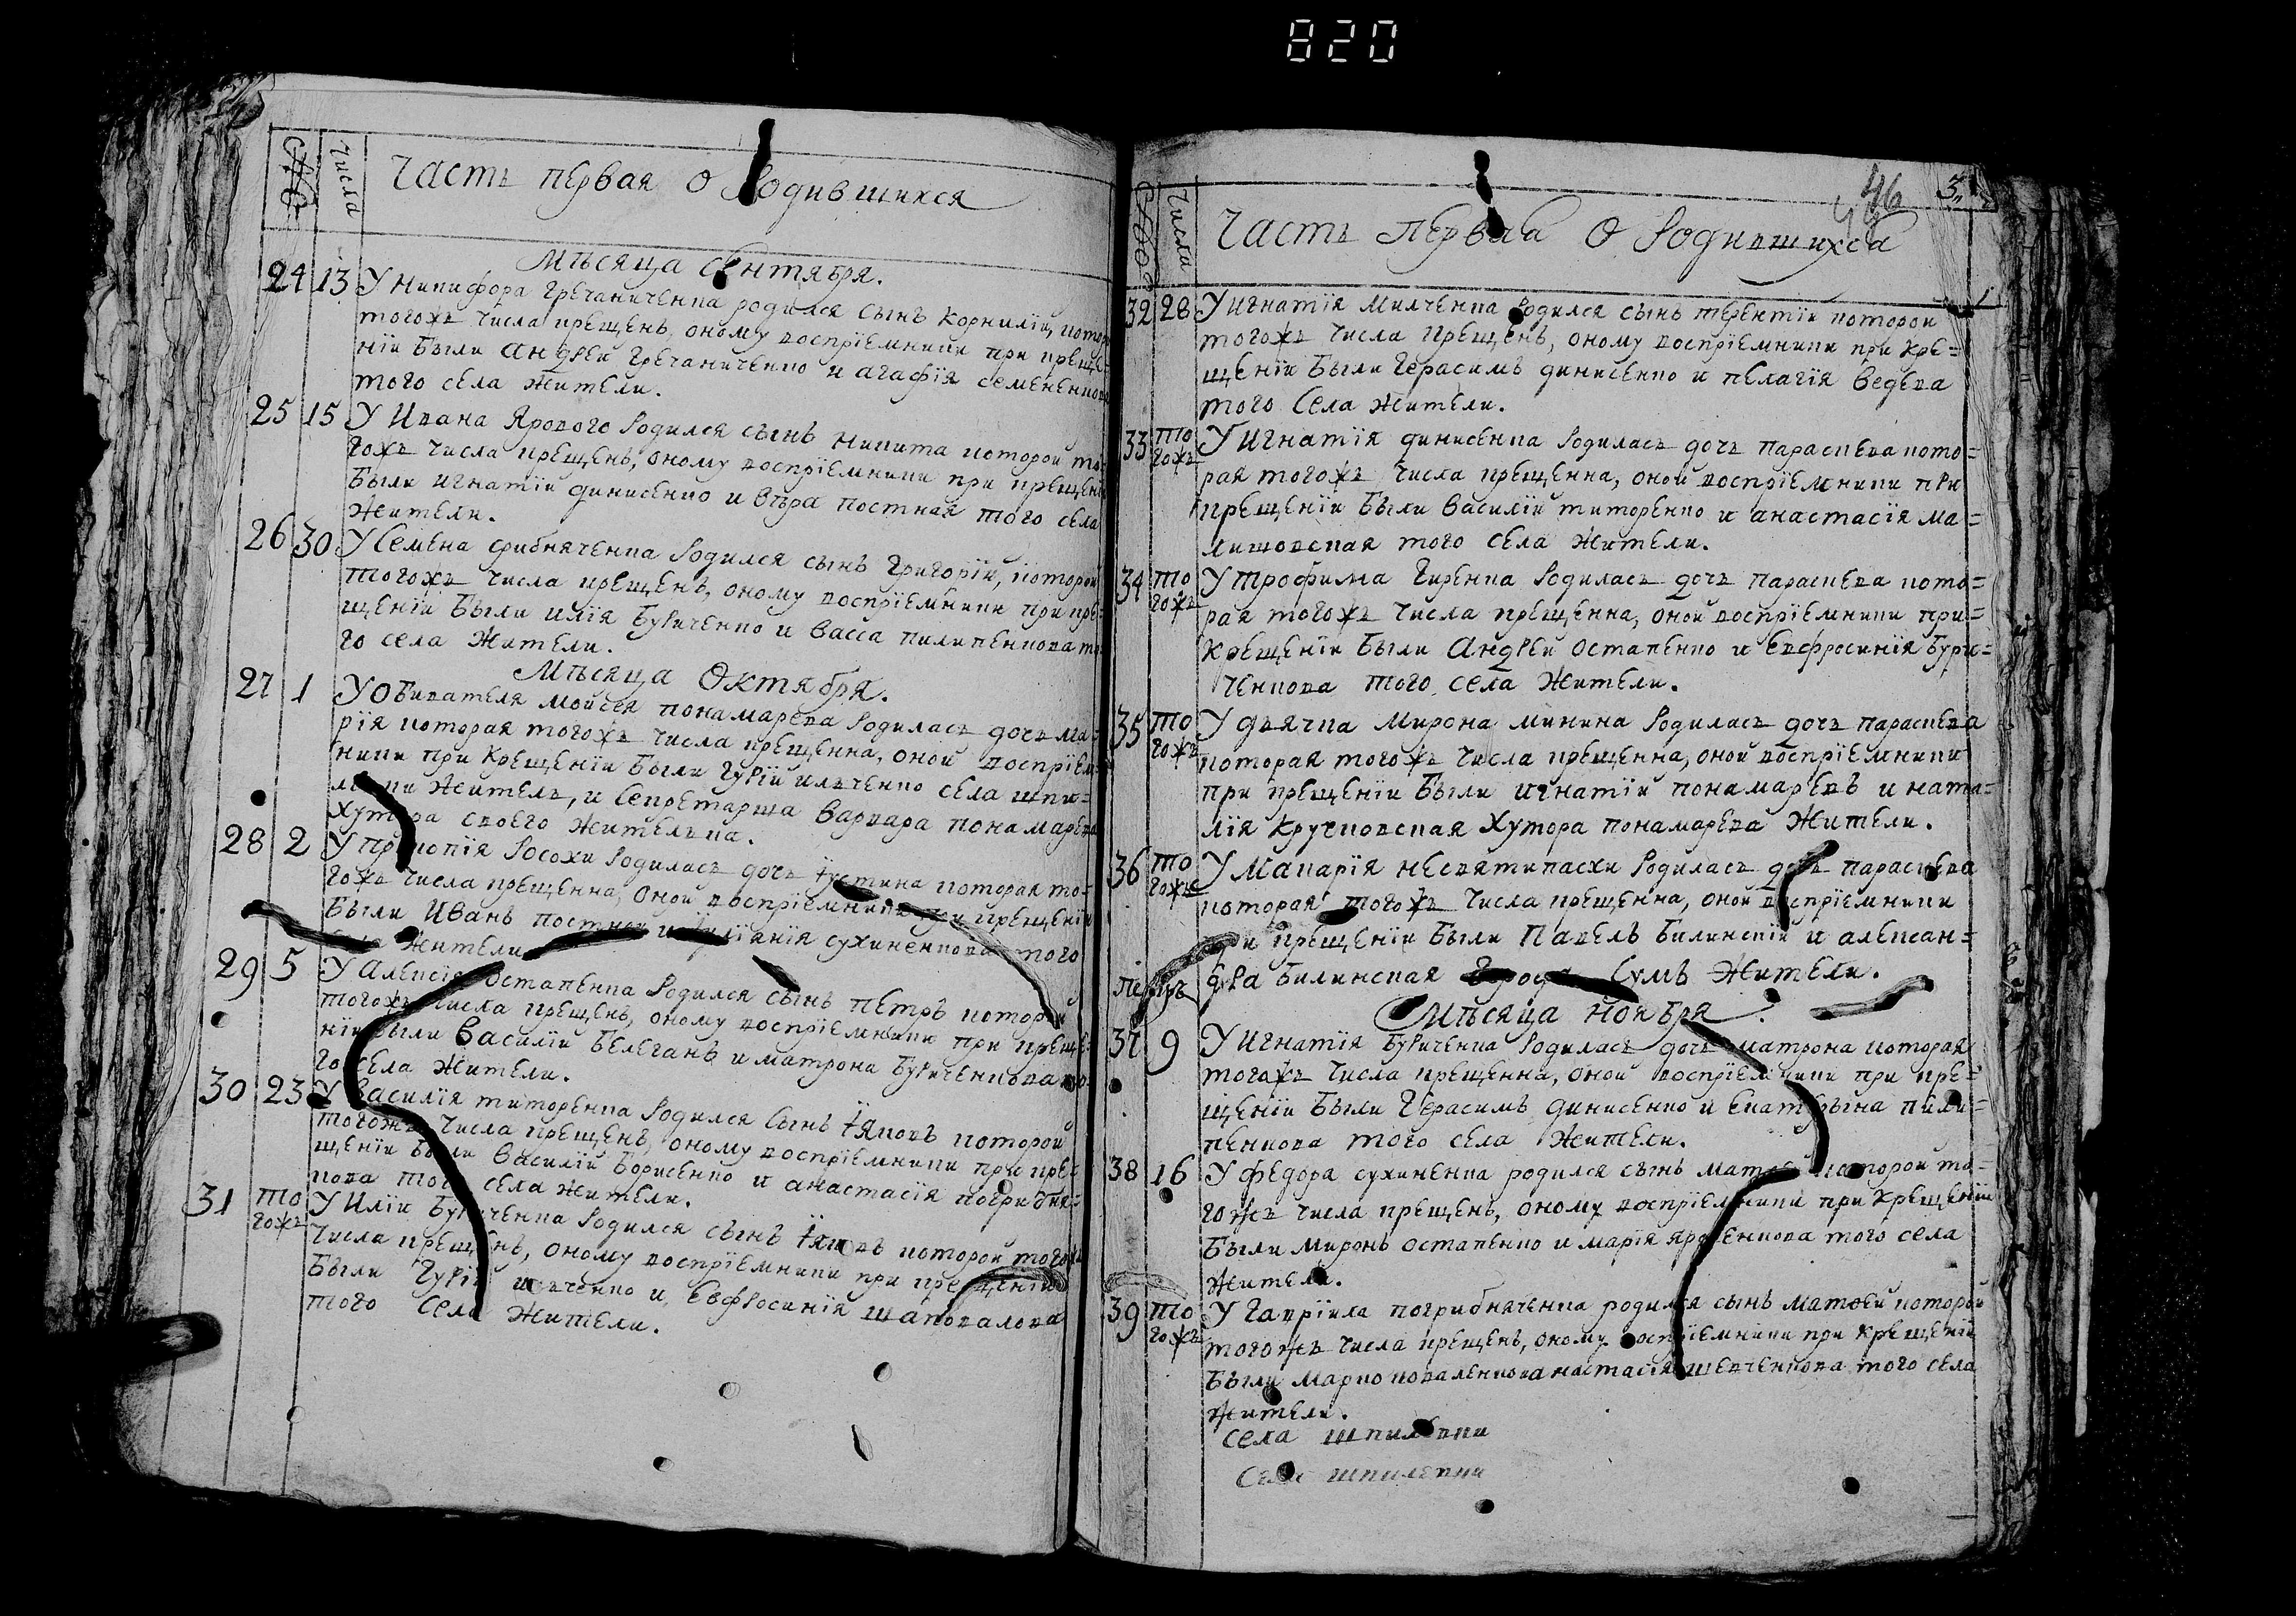 820
Числа
Часть первая о Родившихся
Мѣсяца Сентября.
24 13 У Никифора Гречаниченка родился сынъ Корнилій,
тогожъ числа крещенъ, оному воспріемники при креще-
ніи были Андрей Гречаниченко и Агафія Семененкова
того села Жители.
25 15 У Ивана Ярового Родился сынъ Никита которой то
гожъ числа крещенъ, оному воспріемники при крещеніи
были Игнатій Динисенко и Вѣра Постная того села
Жители.
26 30 У Семена Родился сынъ Григорій, которой
тогожъ числа крещенъ, оному воспріемники при кре
щеніи были Илія Буриченко и Васса Пилипенкова то
го села Жители.
Мѣсяца Октября.
27 1 У обивателя Мойсея Понамарева Родилась дочь Ма
рія которая тогожъ числа крещенна, оной воспріем
ники при Крещеніи были Гурій Илченко села Шпи=
Житель, и Секретарша Варвара Понамарева
Хутора своего Жителка.
28 2 У Прокопія Росохи Родилась дочь Іустина которая то
гожъ числа крещенна, оной воспріемники при крещеніи
были Иванъ Постной и Іуліянія Сухиненкова того
села Жители
29 5 У Алексія Остапенка Родился сынъ Петръ которой
тогожъ числа крещенъ, оному воспріемники при креще
ніи были Василій Белеганъ и Матрона Буриченкова то
го села Жители.
30 23 У Василія Титоренка Родился сынъ Іяковъ которой
тогожъ числа крещенъ, оному воспріемники при кре=
щеніи были Василій Борисенко и Анастасія Погрибня=
кова того села Жители.
31 то гожъ У Иліи Буриченка Родился сынъ Іяковъ которой тогожъ
числа крещенъ, оному воспріемники при крещеніи
были Гурій и Евфросинія Шаповалова
того села Жители.
46 3
Числа
Часть первая о Родившихся
32 28 У Игнатія Милченка Родился сынъ Терентій которой
тогожъ числа крещенъ, оному воспріемники при кре=
щеніи были Герасимъ Динисенко и Пелагія Ведева
того села Жители.
33 то гожъ У Игнатія Динисенка Родилась дочь Параскева кото=
рая тогожъ числа крещенна, оной воспріемники при
крещеніи были Василій Титоренко и Анастасія Ма=
лишовская того села Жители.
34 то гожъ У Трофима Гиренка Родилась дочь Параскева кото=
рая тогожъ числа крещенна, оной воспріемники при=
Крещеніи были Андрей Остапенко и Евфросинія Бури=
ченкова того села Жители.
35 то гожъ У дьячка Мирона Минина Родилась дочь Параскева
которая тогожъ числа крещенна, оной воспріемники
при крещеніи были Игнатій Понамаревъ и Ната=
лія Кручковская Хутора Понамарева Жители.
36 то гоже У Макарія Несвятипасхи Родилась дочь Параскева
которая тогожъ числа крещенна, оной воспріемники
при крещеніи были Павелъ Билинскій и Алексан=
дра Билинская Города Сумъ Жители.
Мѣсяца Ноября.
37 9 У Игнатія Буриченка Родилась дочь Матрона которая
тогожъ числа крещенна, оной воспріемники при кре=
щеніи были Герасимъ Динисенко и Екатерына Пили=
пенкова того села Жители.
38 16 У Федора Сухиненка родился сынъ которой то=
гожъ числа крещенъ, оному воспріемники при Крещеніи
были Миронъ Остапенко и Марія того села
Жители.
39 то гожъ У Гавріила Погрибняченка родился сынъ Матвей которой
тогожъ числа крещенъ, оному воспріемники при Крещеніи
были Марко Анастасія Шевченкова того села
Жители.
села Шпилевки
села Шпилевки